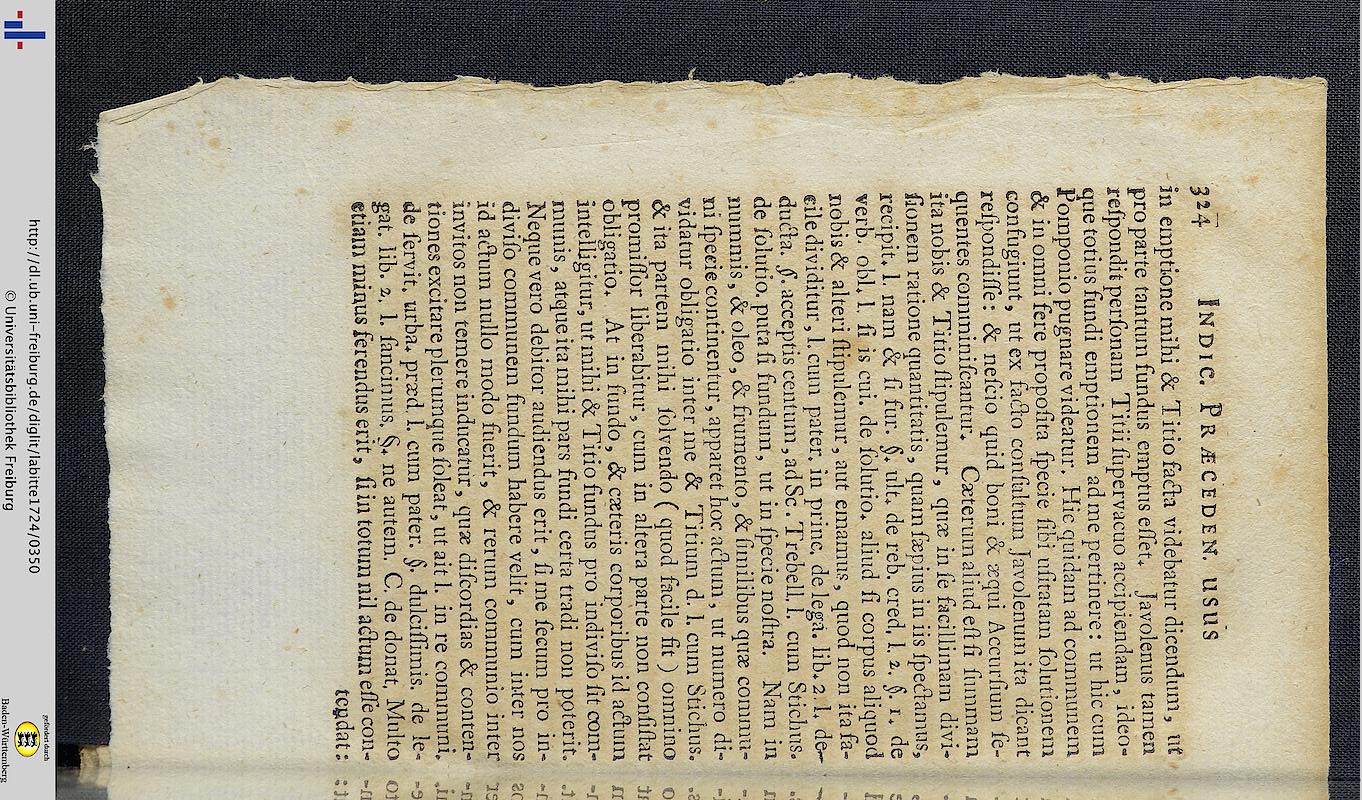 324 INDIC. PRÆCEDEN. USUS
in emptione mihi & Titio facta videbatur dicendum, ut
pro parte tantum fundus emptus esset. Javolenus tamen
respondit personam Titii supervacuo accipiendam, ideo-
que totius fundi emptionem ad me pertinere: ut hic cum
Pomponio pugnare videatur. Hic quidam ad communem
& in omni fere proposita specie sibi usitatam solutionem
confugiunt, ut ex facto consultum Javolenum ita dicant
respondisse: & nescio quid boni & æqui Accursium se-
quentes comminiscantur. Cæterum aliud est si summam
ita nobis & Titio stipulemur, quæ in se facillimam divi-
sionem ratione quantitatis, quam sæpius in iis spectamus,
recipit. l. nam & si fur. §. ult. de reb. cred. l. 2. §. 1. de
verb. obl. l. si is cui. de solutio. aliud si corpus aliquod
nobis & alteri stipulemur, aut emamus, quod non ita fa-
cile dividitur, l. cum pater. in princ. de lega. lib. 2. l. de-
ducta. §. acceptis centum, ad Sc. Trebell. l. cum Stichus.
de solutio. puta si fundum, ut in specie nostra. Nam in
nummis, & oleo, & frumento, & similibus quæ commu-
ni specie continentur, apparet hoc actum, ut numero di-
vidatur obligatio inter me & Titium d. l. cum Stichus.
& ita partem mihi solvendo ( quod facile fit ) omnino
promissor liberabitur, cum in altera parte non consistat
obligatio. At in fundo, & cæteris corporibus id actum
intelligitur, ut mihi & Titio fundus pro indiviso sit com-
munis, atque ita mihi pars fundi certa tradi non poterit.
Neque vero debitor audiendus erit, si me secum pro in-
diviso communem fundum habere velit, cum inter nos
id actum nullo modo fuerit, & rerum communio inter
invitos non temere inducatur, quæ discordias & conten-
tiones excitare plerumque soleat, ut ait l. in re communi.
de servit. urba. præd. l. cum pater. §. dulcissimis. de le-
gat. lib. 2. l. sancimus. §. ne autem. C. de donat. Multo
etiam minus ferendus erit, si in totum nil actum esse con-
tendat:
http://dl.ub.uni-freiburg.de/diglit/labitte1724/0350
© Universitätsbibliothek Freiburg
gefördert durch
Baden-Württemberg